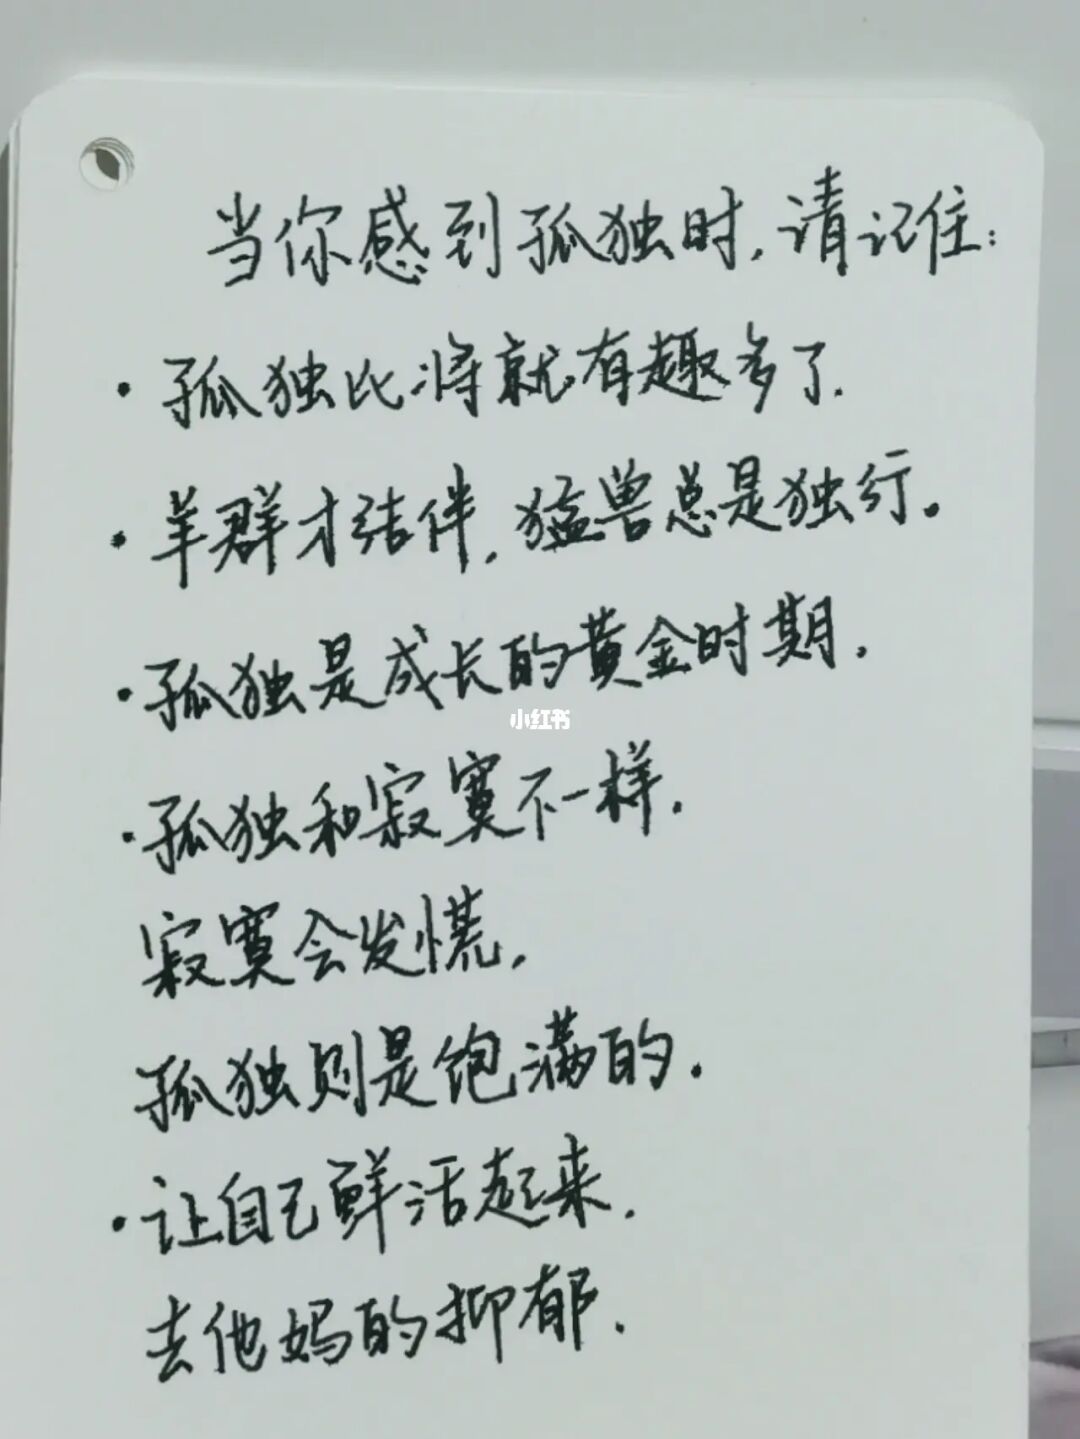 当你感到孤独时，请记住：
·孤独比将就有趣多了.
·羊群才结伴，猛兽总是独行。
·孤独是成长的黄金时期.
小红书
·孤独和寂寞不一样.
寂寞会发慌，
孤独则是饱满的.
·让自己鲜活起来.
去他妈的抑郁.